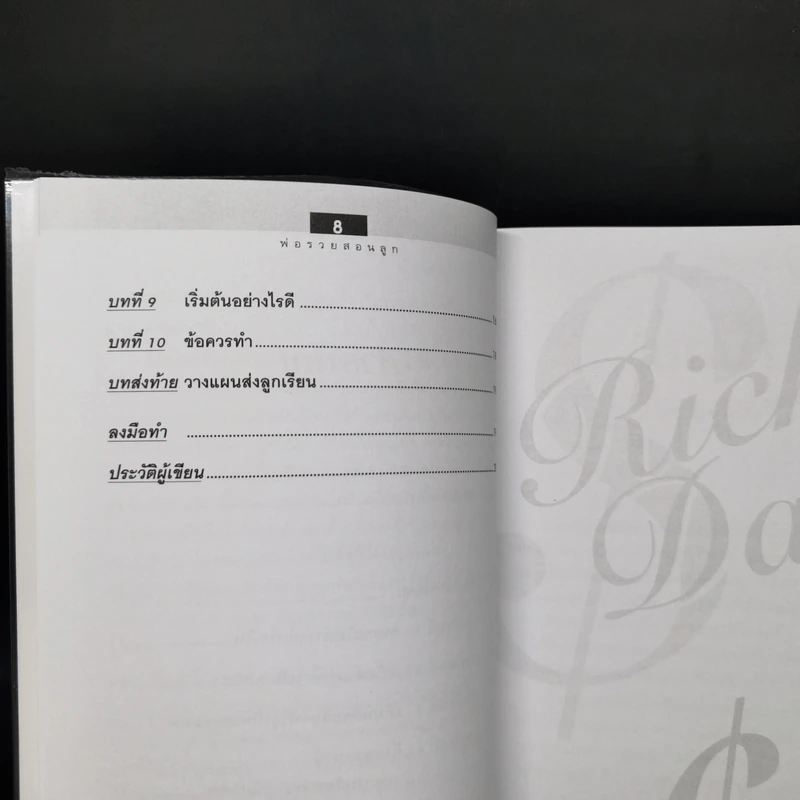 8
พ่อรวยสอนลูก
บทที่ 9 เริ่มต้นอย่างไรดี
บทที่ 10 ข้อควรทำ
บทส่งท้าย วางแผนส่งลูกเรียน
ลงมือทำ
ประวัติผู้เขียน
Rich
Da